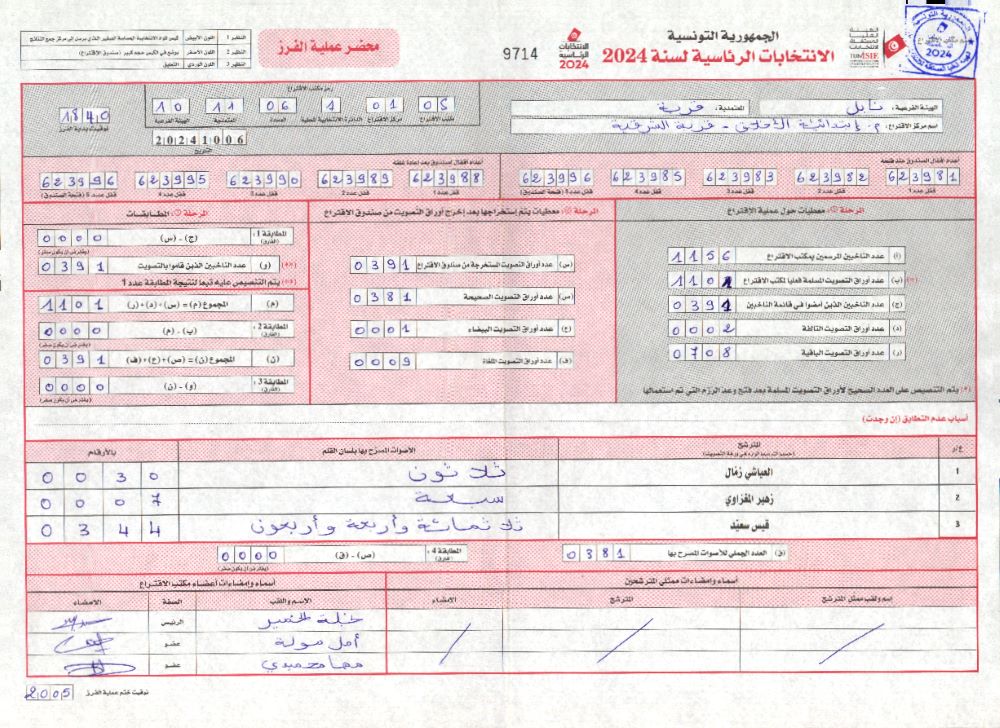 الجمهورية التونسية
الانتخابات الرئاسية لسنة 2024
الانتخابات الرئاسية 2024
9714
محضر عملية الفرز
النظير 1 اللون الأبيض
النظير 2 اللون الأصفر يوضع في الكيس معه كبير (صندوق الاقتراع)
النظير 3 اللون الوردي التعليق
الهيئة الفرعية: نابل المعتمدية: قربة
اسم مركز الاقتراع:
رمز مكتب الاقتراع
05 01 1 06 11 10
مكتب الاقتراع مركز الاقتراع الدائرة الانتخابية المحلية العمادة المعتمدية الهيئة الفرعية
1840
توقيت بداية الفرز
20241006
تاريخ
أعداد أقفال الصندوق عند فتحه
623981 623982 623983 623985 623996
قفل عدد 1 قفل عدد 2 قفل عدد 3 قفل عدد 4 قفل عدد 5 (فتحة الصندوق)
أعداد أقفال الصندوق بعد إعادة غلقه
623988 623989 623990 623995 623996
قفل عدد 1 قفل عدد 2 قفل عدد 3 قفل عدد 4 قفل عدد 5 (فتحة الصندوق)
المرحلة ①: معطيات حول عملية الاقتراع
(أ) عدد الناخبين المرسمين بمكتب الاقتراع 1156
(ب) عدد أوراق التصويت المسلمة فعليا لمكتب الاقتراع 1101
(ج) عدد الناخبين الذين أمضوا في قائمة الناخبين 0391
(د) عدد أوراق التصويت التالفة 0002
(ر) عدد أوراق التصويت الباقية 0708
(*) يتم التنصيص على العدد الصحيح لأوراق التصويت المسلمة بعد فتح وعد الرزم التي تم استعمالها
المرحلة ②: معطيات يتم إستخراجها بعد إخراج أوراق التصويت من صندوق الاقتراع
(س) عدد أوراق التصويت المستخرجة من صندوق الاقتراع 0391
(ص) عدد أوراق التصويت الصحيحة 0381
(ع) عدد أوراق التصويت البيضاء 0001
(ف) عدد أوراق التصويت الملغاة 0009
المرحلة ③: المطابقات
المطابقة 1: (الفارق) (ج) - (س) 0000
(يفترض أن يكون صفر)
(**) (و) عدد الناخبين الذين قاموا بالتصويت 0391
(**) يتم التنصيص عليه تبعا لنتيجة المطابقة عدد 1
(م) المجموع (م) = (س)+(د)+(ر) 1101
المطابقة 2: (الفارق) (ب) - (م) 0000
(يفترض أن يكون صفر)
(ن) المجموع (ن) = (ص)+(ع)+(ف) 0391
المطابقة 3: (الفارق) (و) - (ن) 0000
(يفترض أن يكون صفر)
أسباب عدم التطابق (إن وجدت)
ع/ر المترشح الأصوات المصرح بها بلسان القلم بالأرقام
1 العياشي زمّال ثلاثون 0030
2 زهير المغزاوي سبعة 0007
3 قيس سعيّد ثلاثمائة وأربعة وأربعون 0344
(ق) العدد الجملي للأصوات المصرح بها 0381
المطابقة 4: (الفارق) (ص) - (ق) 0000
(يفترض أن يكون صفر)
أسماء وإمضاءات ممثلي المترشحين
إسم ولقب ممثل المترشح المترشح الامضاء
أسماء وإمضاءات أعضاء مكتب الاقتراع
الاسم واللقب الصفة الامضاء
الرئيس
أمل مولة عضو
عضو
توقيت ختم عملية الفرز 2005